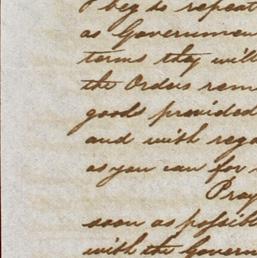 I beg to repeat
as Governmen
terms they will
the Orders rem
goods provided
and with rega
as you can for
Pray
soon as possibl
with the Govern